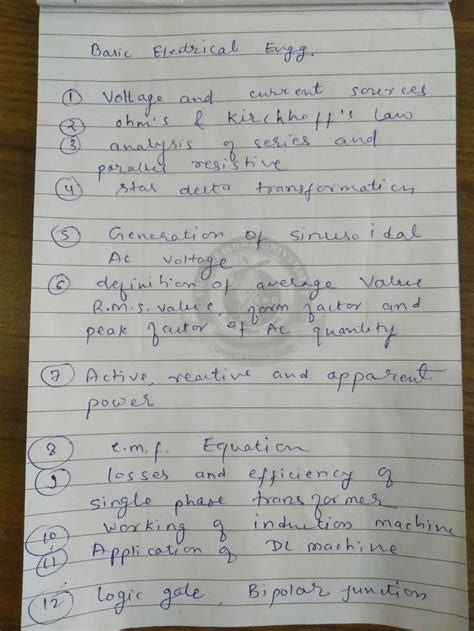 Basic Electrical Engg.
① Voltage and current sources
② ohm's & Kirchhoff's Law
③ analysis of series and
parallel resistive
④ star delta transformation
⑤ Generation of sinusoidal
Ac voltage
⑥ definition of average Value
R.M.S. value, form factor and
peak factor of AC quantity
⑦ Active, reactive and apparent
power
⑧ e.m.f. Equation
⑨ losses and efficiency of
single phase transformer
⑩ working of induction machine
⑪ Application of DC machine
⑫ Logic gate, Bipolar junction